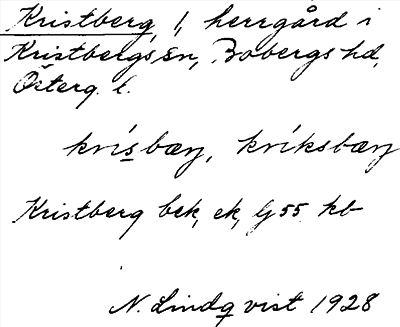 Kristberg, 1, herrgård i
Kristbergs sn, Bobergs hd,
Österg. l.
krísbæŋ, kríksbæŋ
Kristberg bek, ek, Gj 55 kb
N. Lindqvist 1928